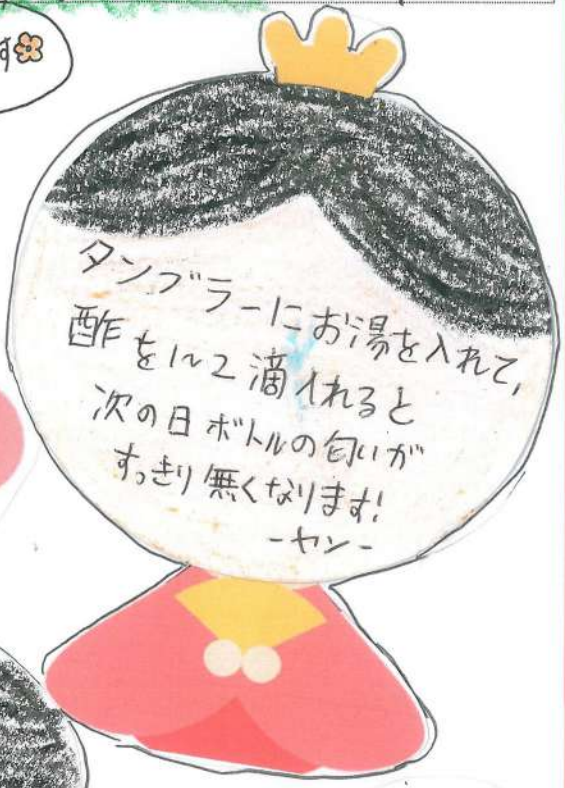 す
タンブラーにお湯を入れて、
酢を1~2滴入れると
次の日ボトルの匂いが
すっきり無くなります!
-ヤン-